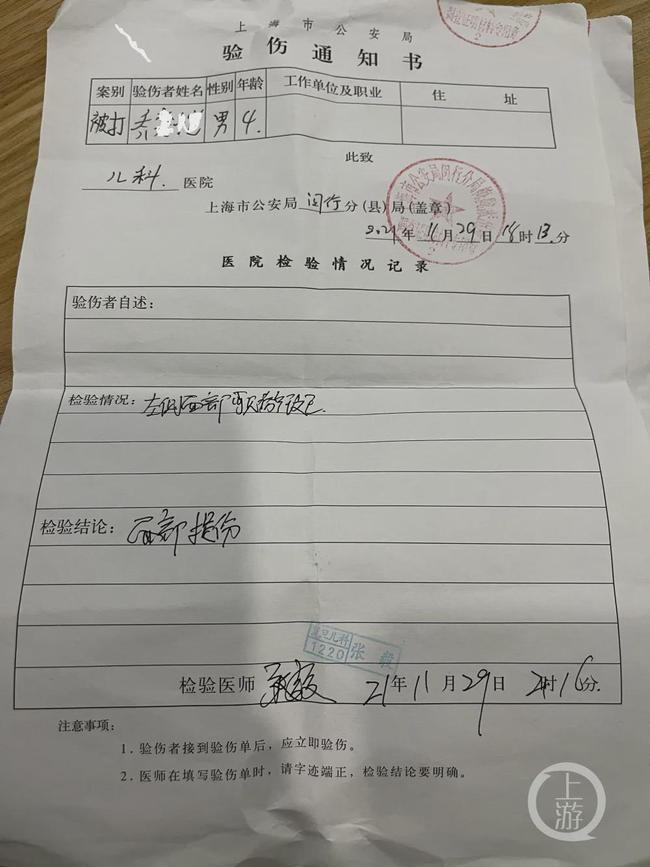 上海市公安局
验伤通知书
案别 验伤者姓名 性别 年龄 工作单位及职业 住 址
被打 男 4.
此致
儿科. 医院
上海市公安局 闵行 分(县)局(盖章)
2021年11月29日18时13分
医院检验情况记录
验伤者自述:
检验情况: 左侧面部
检验结论: 面部损伤
复旦儿科
1220 张毅
检验医师 张毅 21年11月29日 时16分.
注意事项:
1. 验伤者接到验伤单后,应立即验伤。
2. 医师在填写验伤单时,请字迹端正,检验结论要明确。
上游